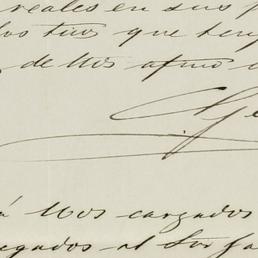 reales en sus p
los tios que ten
de Uds afmo
Ge
á Uds cargados
egados al Sor fa